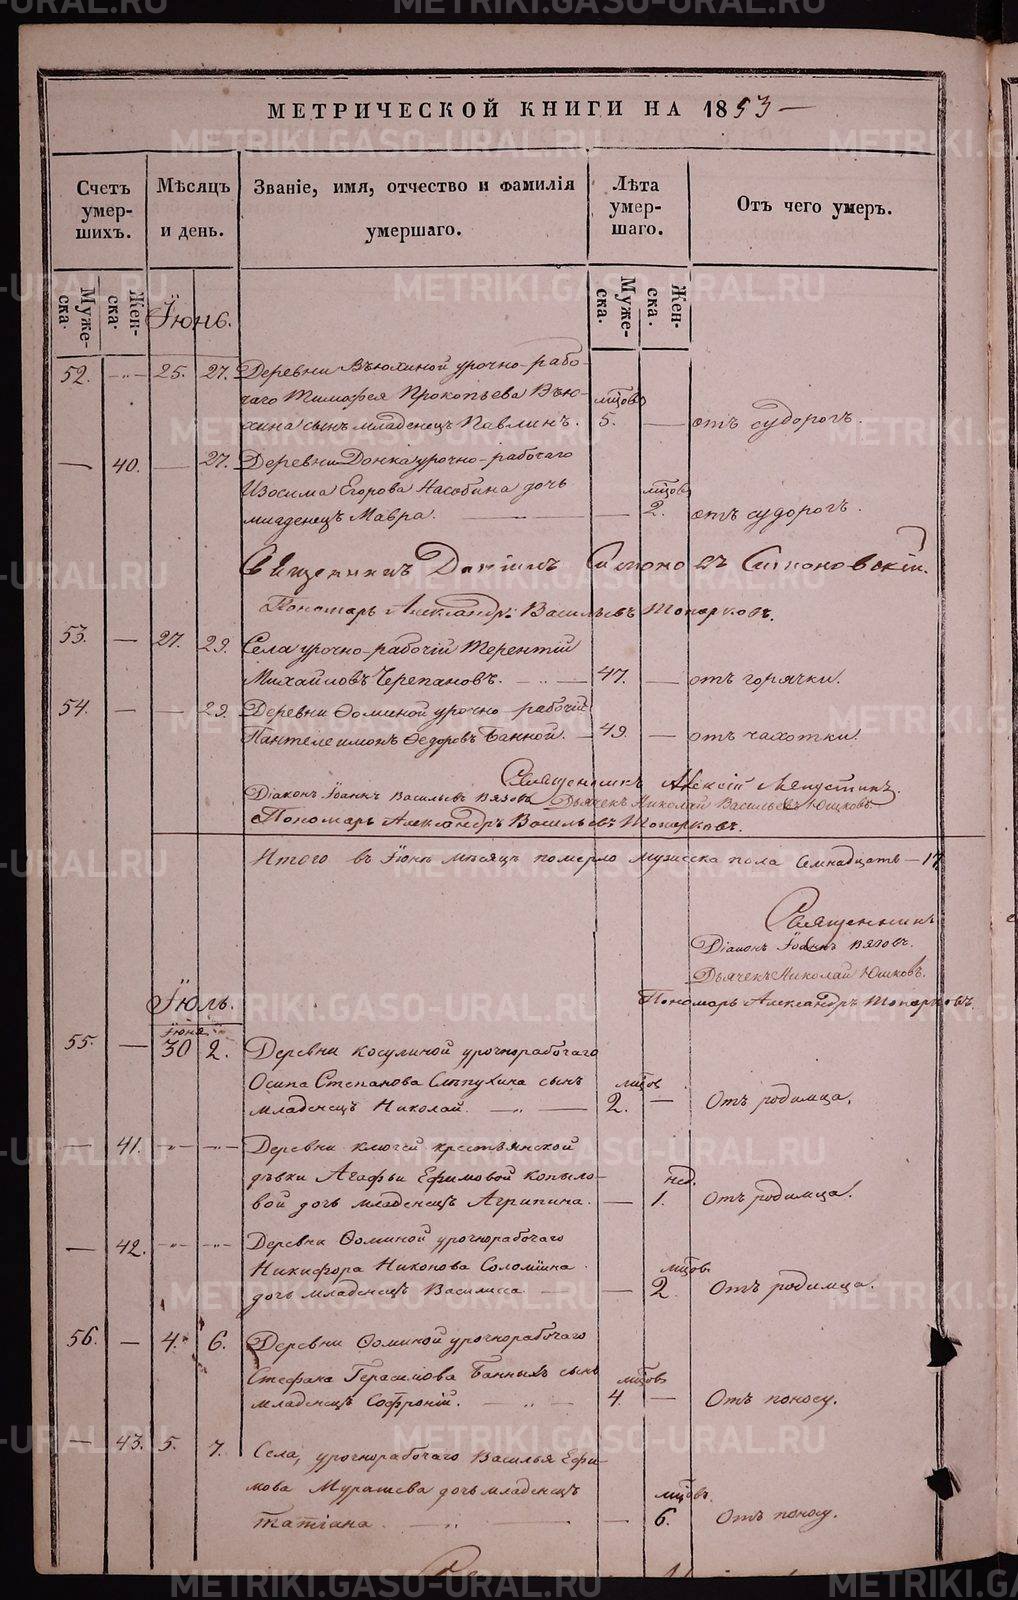 МЕТРИЧЕСКОЙ КНИГИ НА 1853 —
Счетъ умер- шихъ.
Мѣсяцъ и день.
Званіе, имя, отчество и фамилія умершаго.
Лѣта умер- шаго.
Отъ чего умеръ.
Муже- ска.
Жен- ска.
Муже- ска.
Жен- ска.
Іюнь.
52. 25. 27. Деревни Вьюхиной урочно-рабо-
чаго Тимофея Прокопьева Вью-
хина сынъ младенецъ Павлинъ. мцов 5. — отъ судорогъ.
— 40. — 27. Деревни Донка урочно-рабочаго
Изосима Егорова Насобина дочь
младенецъ Мавра. — мцов 2. отъ судорогъ.
Священникъ Даніилъ Симоновскій.
Пономарь Александръ Васильевъ Топорковъ.
53. — 27. 29. Села урочно-рабочій Терентій
Михайловъ Черепановъ. 47. — отъ горячки.
54. — — 29. Деревни Ѳоминой урочно рабочій
Пантелеимонъ Ѳедоровъ Банной. — 49. — отъ чахотки.
Священникъ Алексій
Діаконъ Іоаннъ Васильевъ Вязовъ. Дьячекъ Николай Васильевъ Юшковъ.
Пономарь Александръ Васильевъ Топорковъ.
Итого въ Іюнѣ мѣсяцѣ померло мужеска пола семнадцать — 17
Священникъ
Діаконъ Іоаннъ Вязовъ.
Дьячекъ Николай Юшковъ.
Пономарь Александръ Топорковъ.
Іюль.
Іюня
55. — 30 2. Деревни Косулиной урочнорабочаго
Осипа Степанова Слѣпухина сынъ
младенецъ Николай. мцов 2. — Отъ родимца.
— 41. Деревни Ключей крестьянской
дѣвки Агафьи Ефимовой Копыло-
вой дочь младенецъ Агрипина. — нед. 1. Отъ родимца.
— 42. Деревни Ѳоминой урочнорабочаго
Никифора Никонова Соломина
дочь младенецъ Василиса. — мцов 2. Отъ родимца.
56. — 4. 6. Деревни Ѳоминой урочнорабочаго
Стефана Герасимова Банныхъ сынъ
младенецъ Софроній. мцов 4. — Отъ поносу.
— 43. 5. 7. Села, урочнорабочаго Василья Ефи-
мова Мурашева дочь младенецъ
Татіана. — мцовъ 6. Отъ поносу.
METRIKI.GASO-URAL.RU